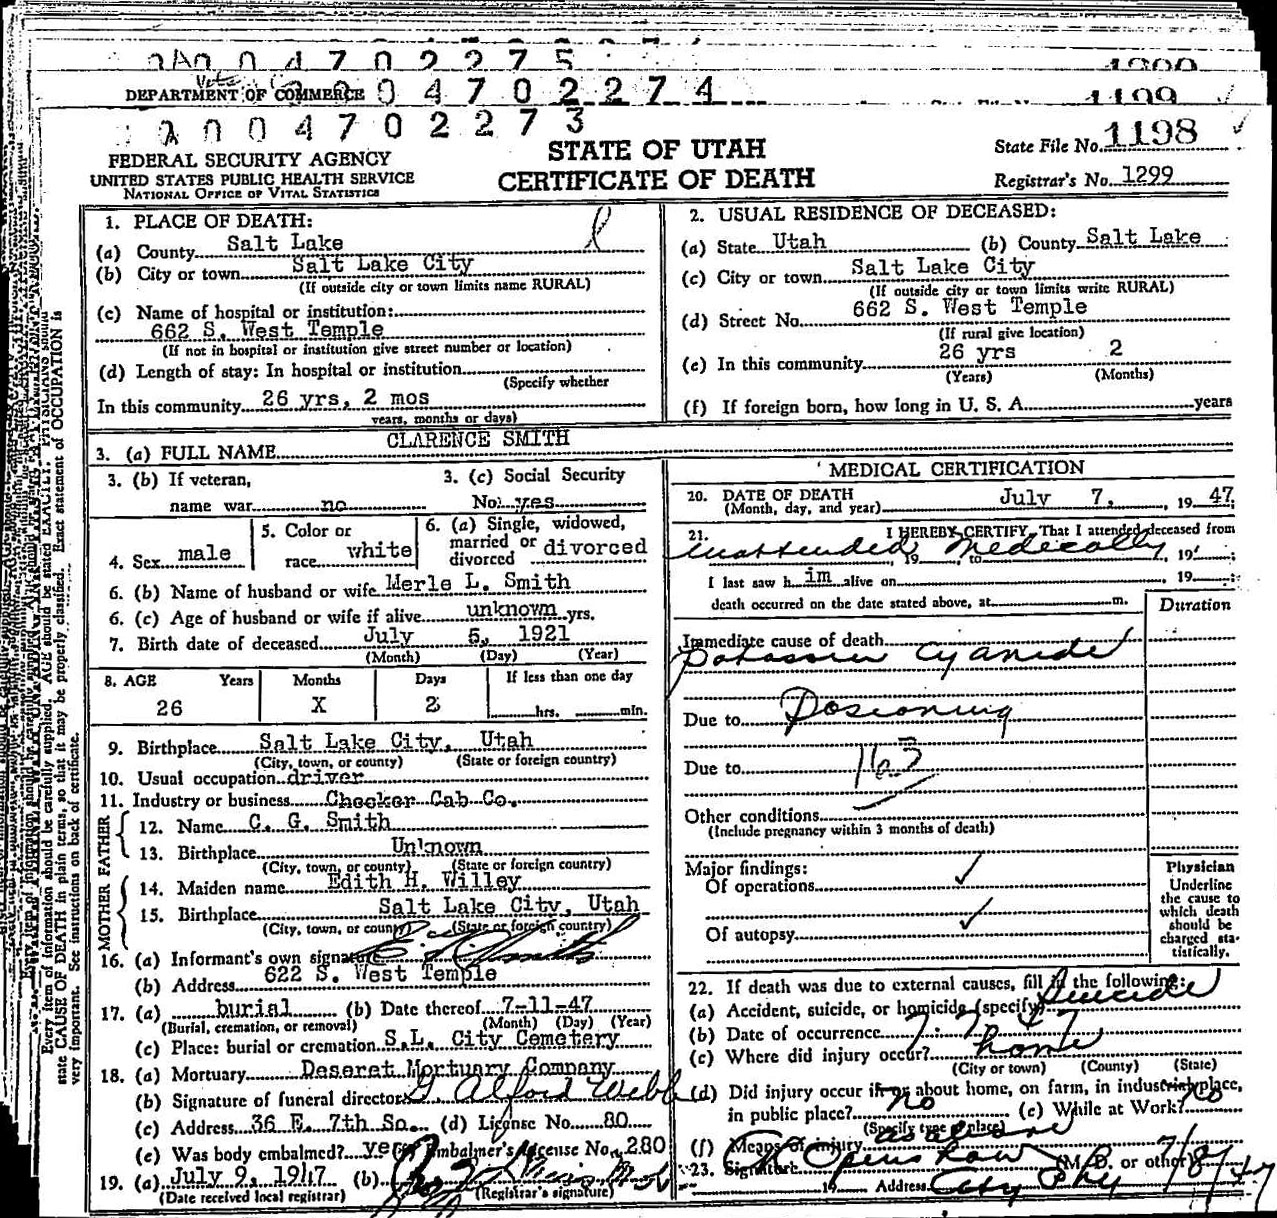 0 4 7 0 2 2 7 5
1200
DEPARTMENT OF COMMERCE 0 4 7 0 2 2 7 4
1199
0 0 4 7 0 2 2 7 3
FEDERAL SECURITY AGENCY
UNITED STATES PUBLIC HEALTH SERVICE
NATIONAL OFFICE OF VITAL STATISTICS
STATE OF UTAH
CERTIFICATE OF DEATH
State File No. 1198
Registrar's No. 1299
1. PLACE OF DEATH:
(a) County Salt Lake
(b) City or town Salt Lake City
(If outside city or town limits name RURAL)
(c) Name of hospital or institution:
662 S. West Temple
(If not in hospital or institution give street number or location)
(d) Length of stay: In hospital or institution
(Specify whether
In this community 26 yrs, 2 mos
years, months or days)
2. USUAL RESIDENCE OF DECEASED:
(a) State Utah (b) County Salt Lake
(c) City or town Salt Lake City
(If outside city or town limits write RURAL)
(d) Street No. 662 S. West Temple
(If rural give location)
(e) In this community 26 yrs 2
(Years) (Months)
(f) If foreign born, how long in U. S. A. years
3. (a) FULL NAME CLARENCE SMITH
3. (b) If veteran,
name war no
3. (c) Social Security
No. yes
4. Sex male
5. Color or
race white
6. (a) Single, widowed,
married or
divorced divorced
6. (b) Name of husband or wife Merle L. Smith
6. (c) Age of husband or wife if alive unknown yrs.
7. Birth date of deceased July 5, 1921
(Month) (Day) (Year)
8. AGE Years Months Days If less than one day
26 X 2 hrs. min.
9. Birthplace Salt Lake City, Utah
(City, town, or county) (State or foreign country)
10. Usual occupation driver
11. Industry or business Checker Cab Co.
FATHER
12. Name C. G. Smith
13. Birthplace Unknown
(City, town, or county) (State or foreign country)
MOTHER
14. Maiden name Edith H. Willey
15. Birthplace Salt Lake City, Utah
(City, town, or county) (State or foreign country)
16. (a) Informant's own signature
(b) Address 622 S. West Temple
17. (a) burial (b) Date thereof 7-11-47
(Burial, cremation, or removal) (Month) (Day) (Year)
(c) Place: burial or cremation S.L. City Cemetery
18. (a) Mortuary Deseret Mortuary Company
(b) Signature of funeral director G Alford Webb
(c) Address 36 E. 7th So. (d) License No. 80
(e) Was body embalmed? yes Embalmer's License No. 280
19. (a) July 9, 1947 (b)
(Date received local registrar) (Registrar's signature)
MEDICAL CERTIFICATION
20. DATE OF DEATH
(Month, day, and year) July 7, , 19 47
21. I HEREBY CERTIFY, That I attended deceased from
unattended, 19 to Medically, 19 ;
I last saw h im alive on , 19 ;
death occurred on the date stated above, at m.
Duration
Immediate cause of death
potassium cyanide
Due to Poisoning
Due to 163
Other conditions
(Include pregnancy within 3 months of death)
Major findings:
Of operations
Of autopsy
Physician
Underline
the cause to
which death
should be
charged sta-
tistically.
22. If death was due to external causes, fill in the following:
(a) Accident, suicide, or homicide (specify) Suicide
(b) Date of occurrence 7. 7. 47
(c) Where did injury occur? home
(City or town) (County) (State)
(d) Did injury occur in or about home, on farm, in industrial place,
in public place? no (e) While at Work? no
(Specify type of place)
(f) Means of injury as above
23. Signature (M. D. or other) 7/8/47
19 Address City Phy
Every item of information should be carefully supplied. AGE should be stated EXACTLY. PHYSICIANS should
state CAUSE OF DEATH in plain terms, so that it may be properly classified. Exact statement of OCCUPATION is
very important. See instructions on back of certificate.